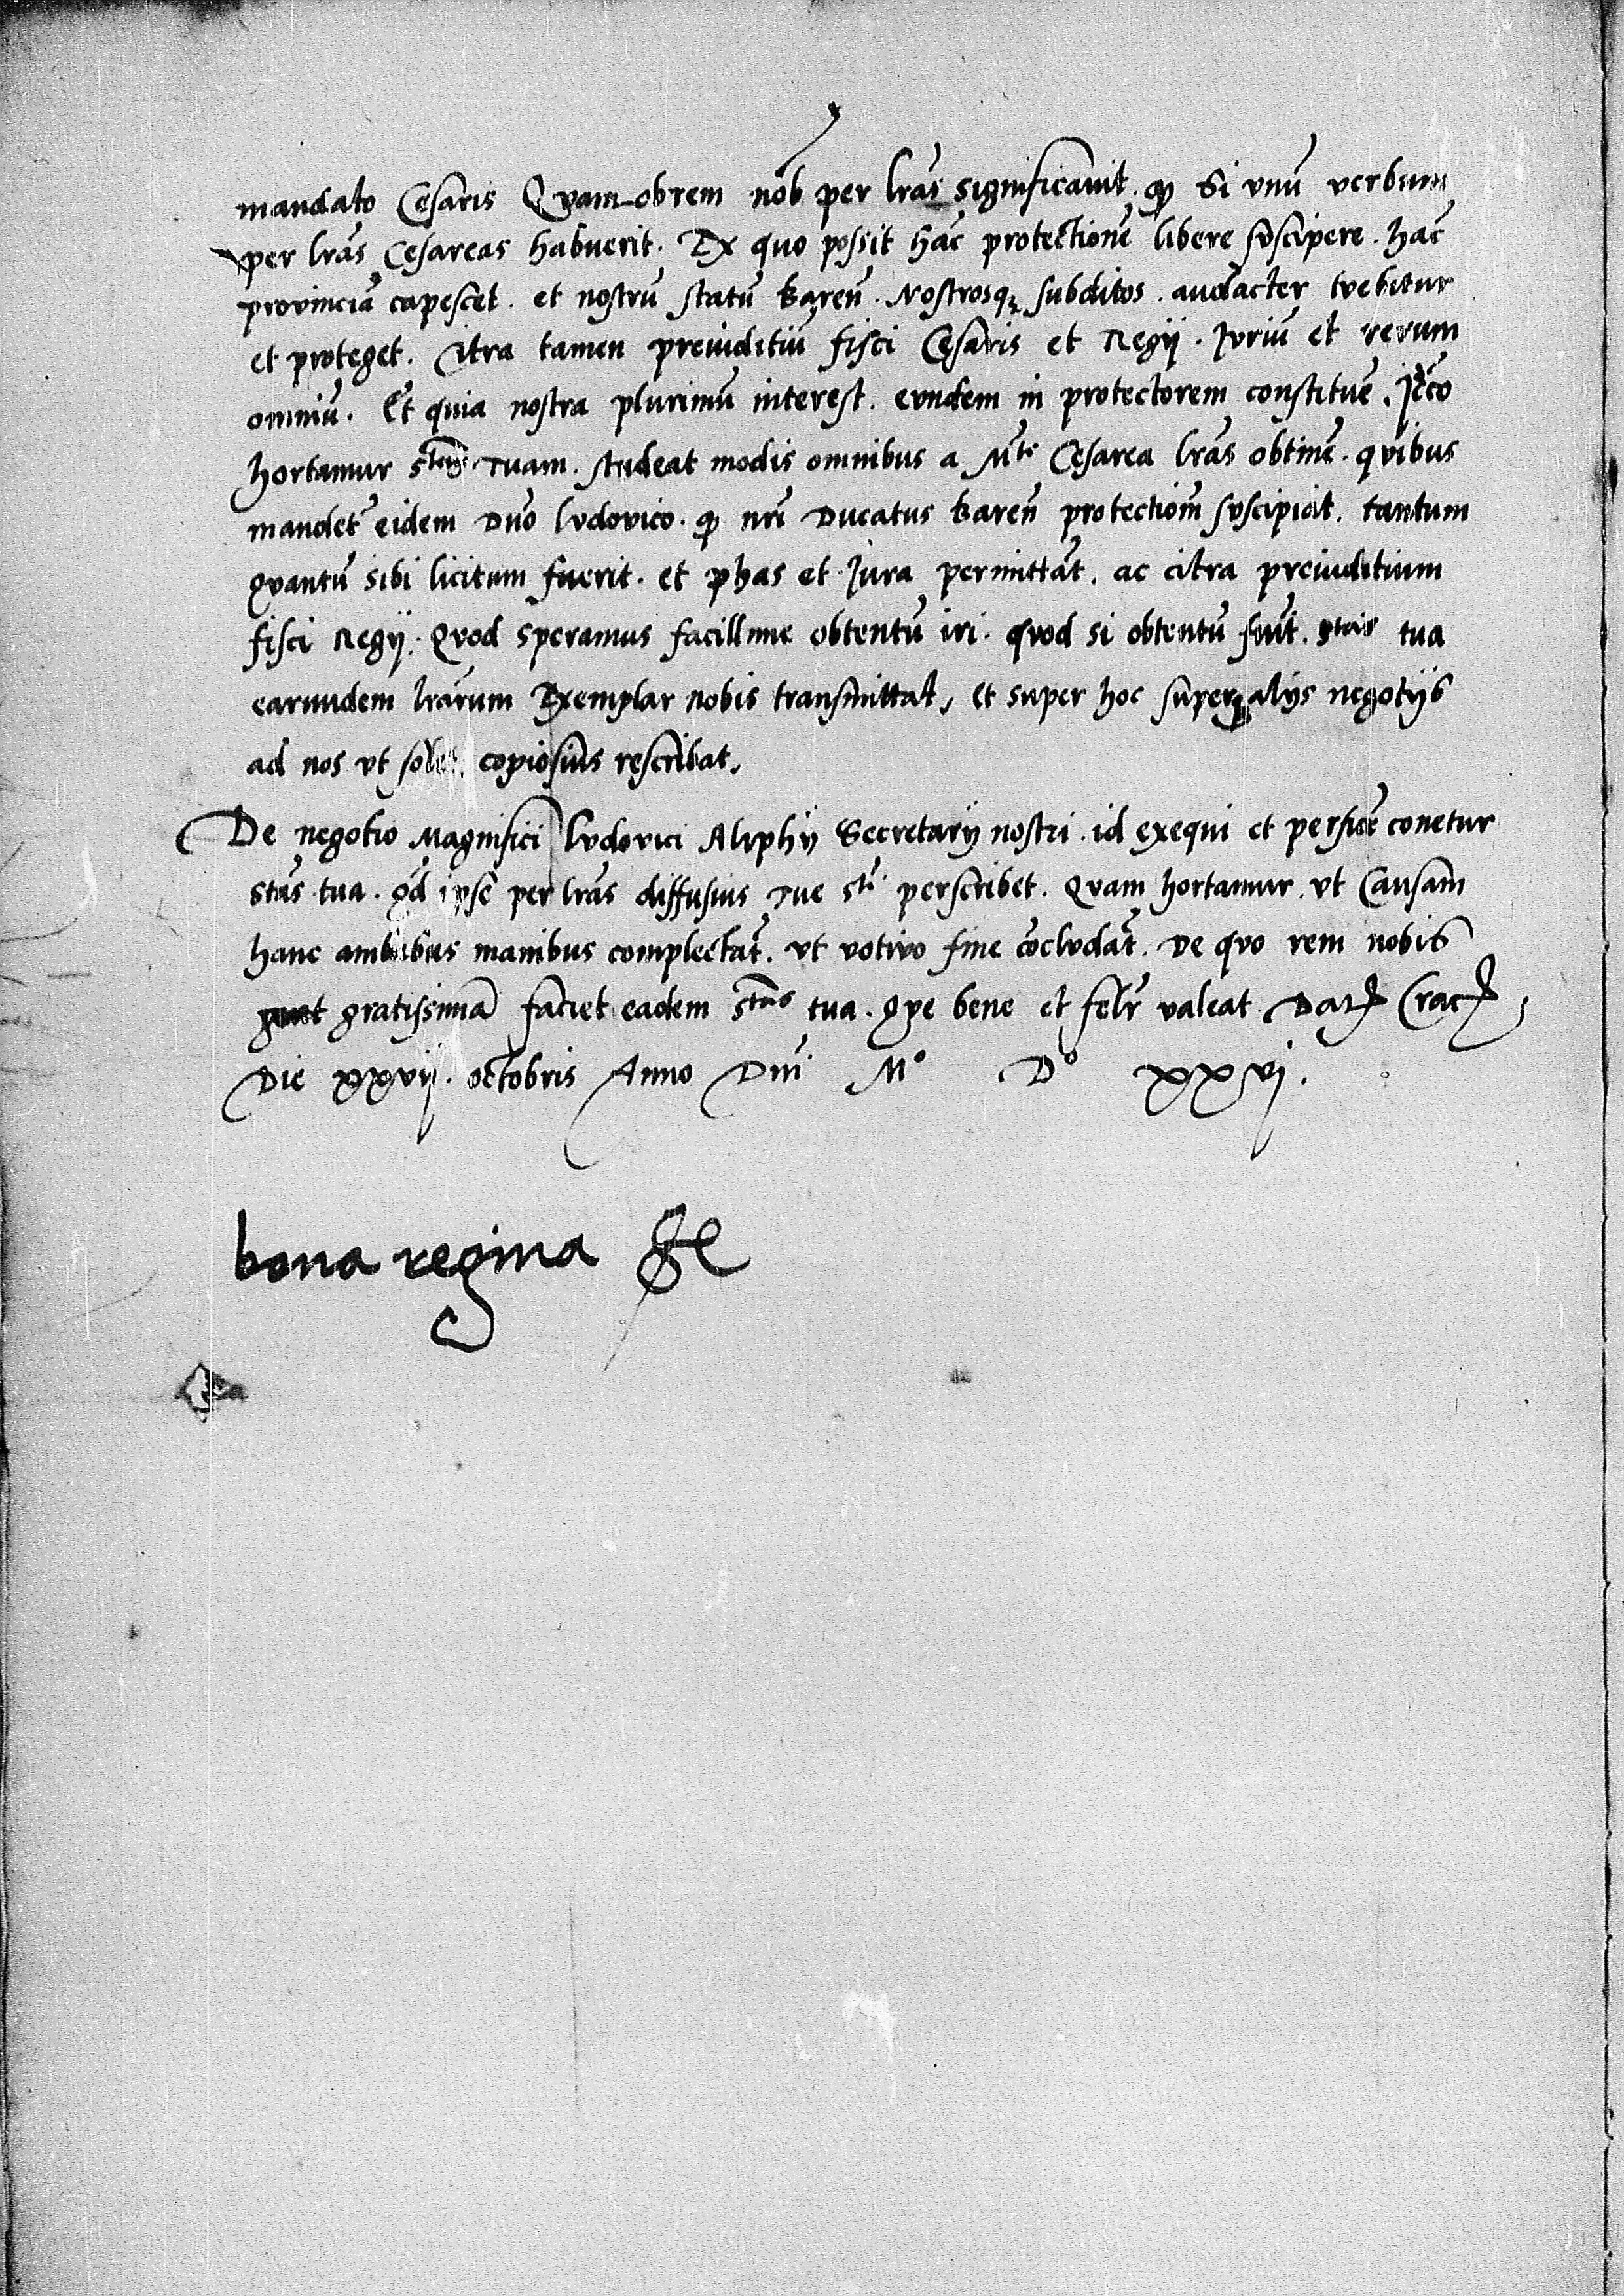 mandato Cesaris Qvam-obrem nob per lrãs significavit. qƺ Si vnũ verbum
per lrãs Cesareas habverit. Ex quo possit hãc protectionẽ libere svscipere. hãc
provinciã capescet. et nostrũ statũ bareñ. Nostrosqƺ subditos. avdacter tvebitur
et proteget. Citra tamen preiuditiũ fisci Cesaris et Regij. Jvriũ et rerum
omniũ. Et quia nostra plurimũ interest. evndem in protectorem constituẽ. Jcc̃o
hortamur Sᵗᵉᵐ Tuam. studeat modis omnibus a Mᵗᵉ Cesarea lrãs obtinẽ. qvibus
mandet eidem Dño lvdovico. qƺ nr̃i Ducatus bareñ protectioñm svscipiat. tantum
qvantũ sibi licitum fuerit. et phas et Jura permittãt. ac citra preiuditium
fisci Regij. Qvod speramus facillime obtentũ iri. qvod si obtentũ fuĩt. Sᵗᵃˢ tua
earundem lrãrum Exemplar nobis transmittat, et super hoc superqƺ alijs negotijs
ad nos vt solet. copiosius rescribat.
De negotio Magnifici lvdovici Aliphij Secretarij nostri. id exequi et perficẽ conetur
Stãs tua. qđ ipse per lrãs diffusius Tue Sᵗⁱ perscribet. Qvam hortamur. vt Causam
hanc ambabus manibus complectãt. vt votivo fine cõclvdãt. De qvo rem nobis
gratissimã faciet eadem Sᵗᵃˢ tua. Qve bene et felr̃ valeat. Datƺ Cracƺ
Die xxvij. octobris Anno Dnĩ Mº Dº xxvj.
bona regina